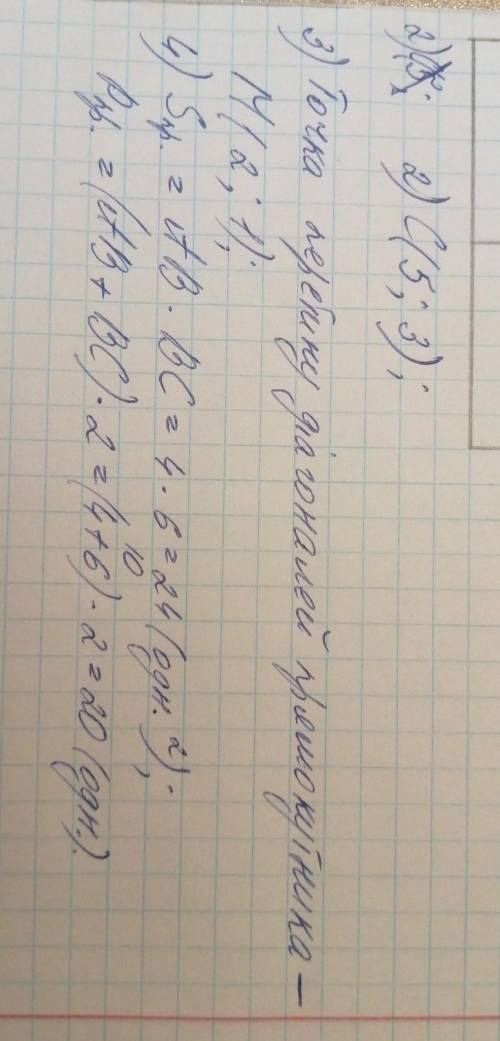 2) C(5; 3);
3) Точка перетину діагоналей прямокутника –
M(2; 1);
4) Sпр. = AB · BC = 4 · 6 = 24 (одн.²);
10
Pпр. = (AB + BC) · 2 = (4+6) · 2 = 20 (одн.).